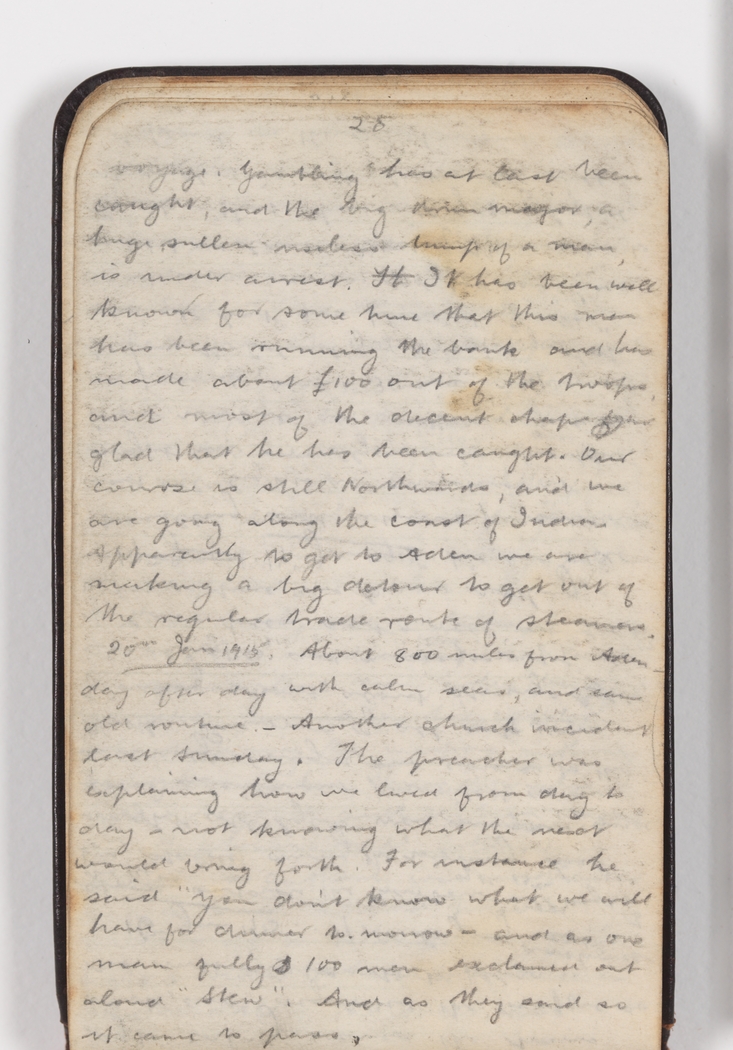 28
voyage. Gambling has at last been
caught, and the big drum major, a
huge sullen useless lump of a man,
is under arrest. It It has been well
known for some time that this man
has been running the bank and has
made about £100 out of the troops,
and most of the decent chaps are
glad that he has been caught. Our
course is still Northwards, and we
are going along the coast of India.
Apparently to get to Aden we are
making a big detour to get out of
the regular trade route of steamers.
20th Jan 1915. About 800 miles from Aden
day after day with calm seas, and same
old routine. – Another church incident
last Sunday. The preacher was
explaining how we lived from day to
day – not knowing what the next
would bring forth. For instance he
said "you don't know what we will
have for dinner to-morrow – and as one
man fully 100 men exclaimed out
aloud "Stew". And as they said so
it came to pass.